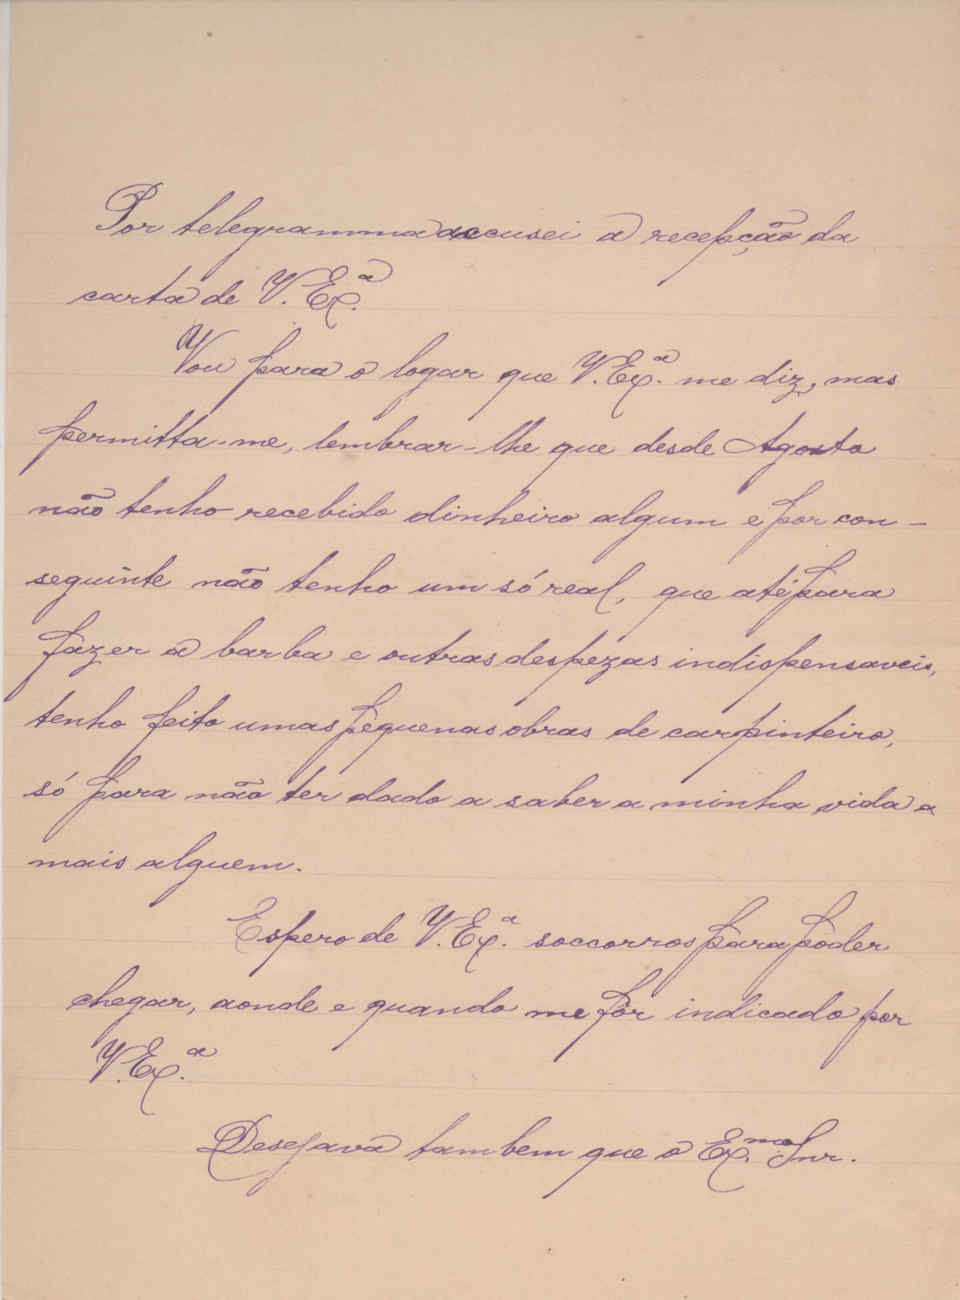 Por telegramma accusei a recepção da
carta de V. Ex.ª
Vou para o logar que V. Ex.ª me diz, mas
permitta-me, lembrar-lhe que desde Agosto
não tenho recebido dinheiro algum e por con-
seguinte não tenho um só real, que até para
fazer a barba e outras despezas indispensaveis,
tenho feito umas pequenas obras de carpinteiro,
só para não ter dado a saber a minha vida a
mais alguem.
Espero de V. Ex.ª soccorros para poder
chegar, aonde e quando me fôr indicado por
V. Ex.ª
Desejava tambem que o Ex.mo Snr.